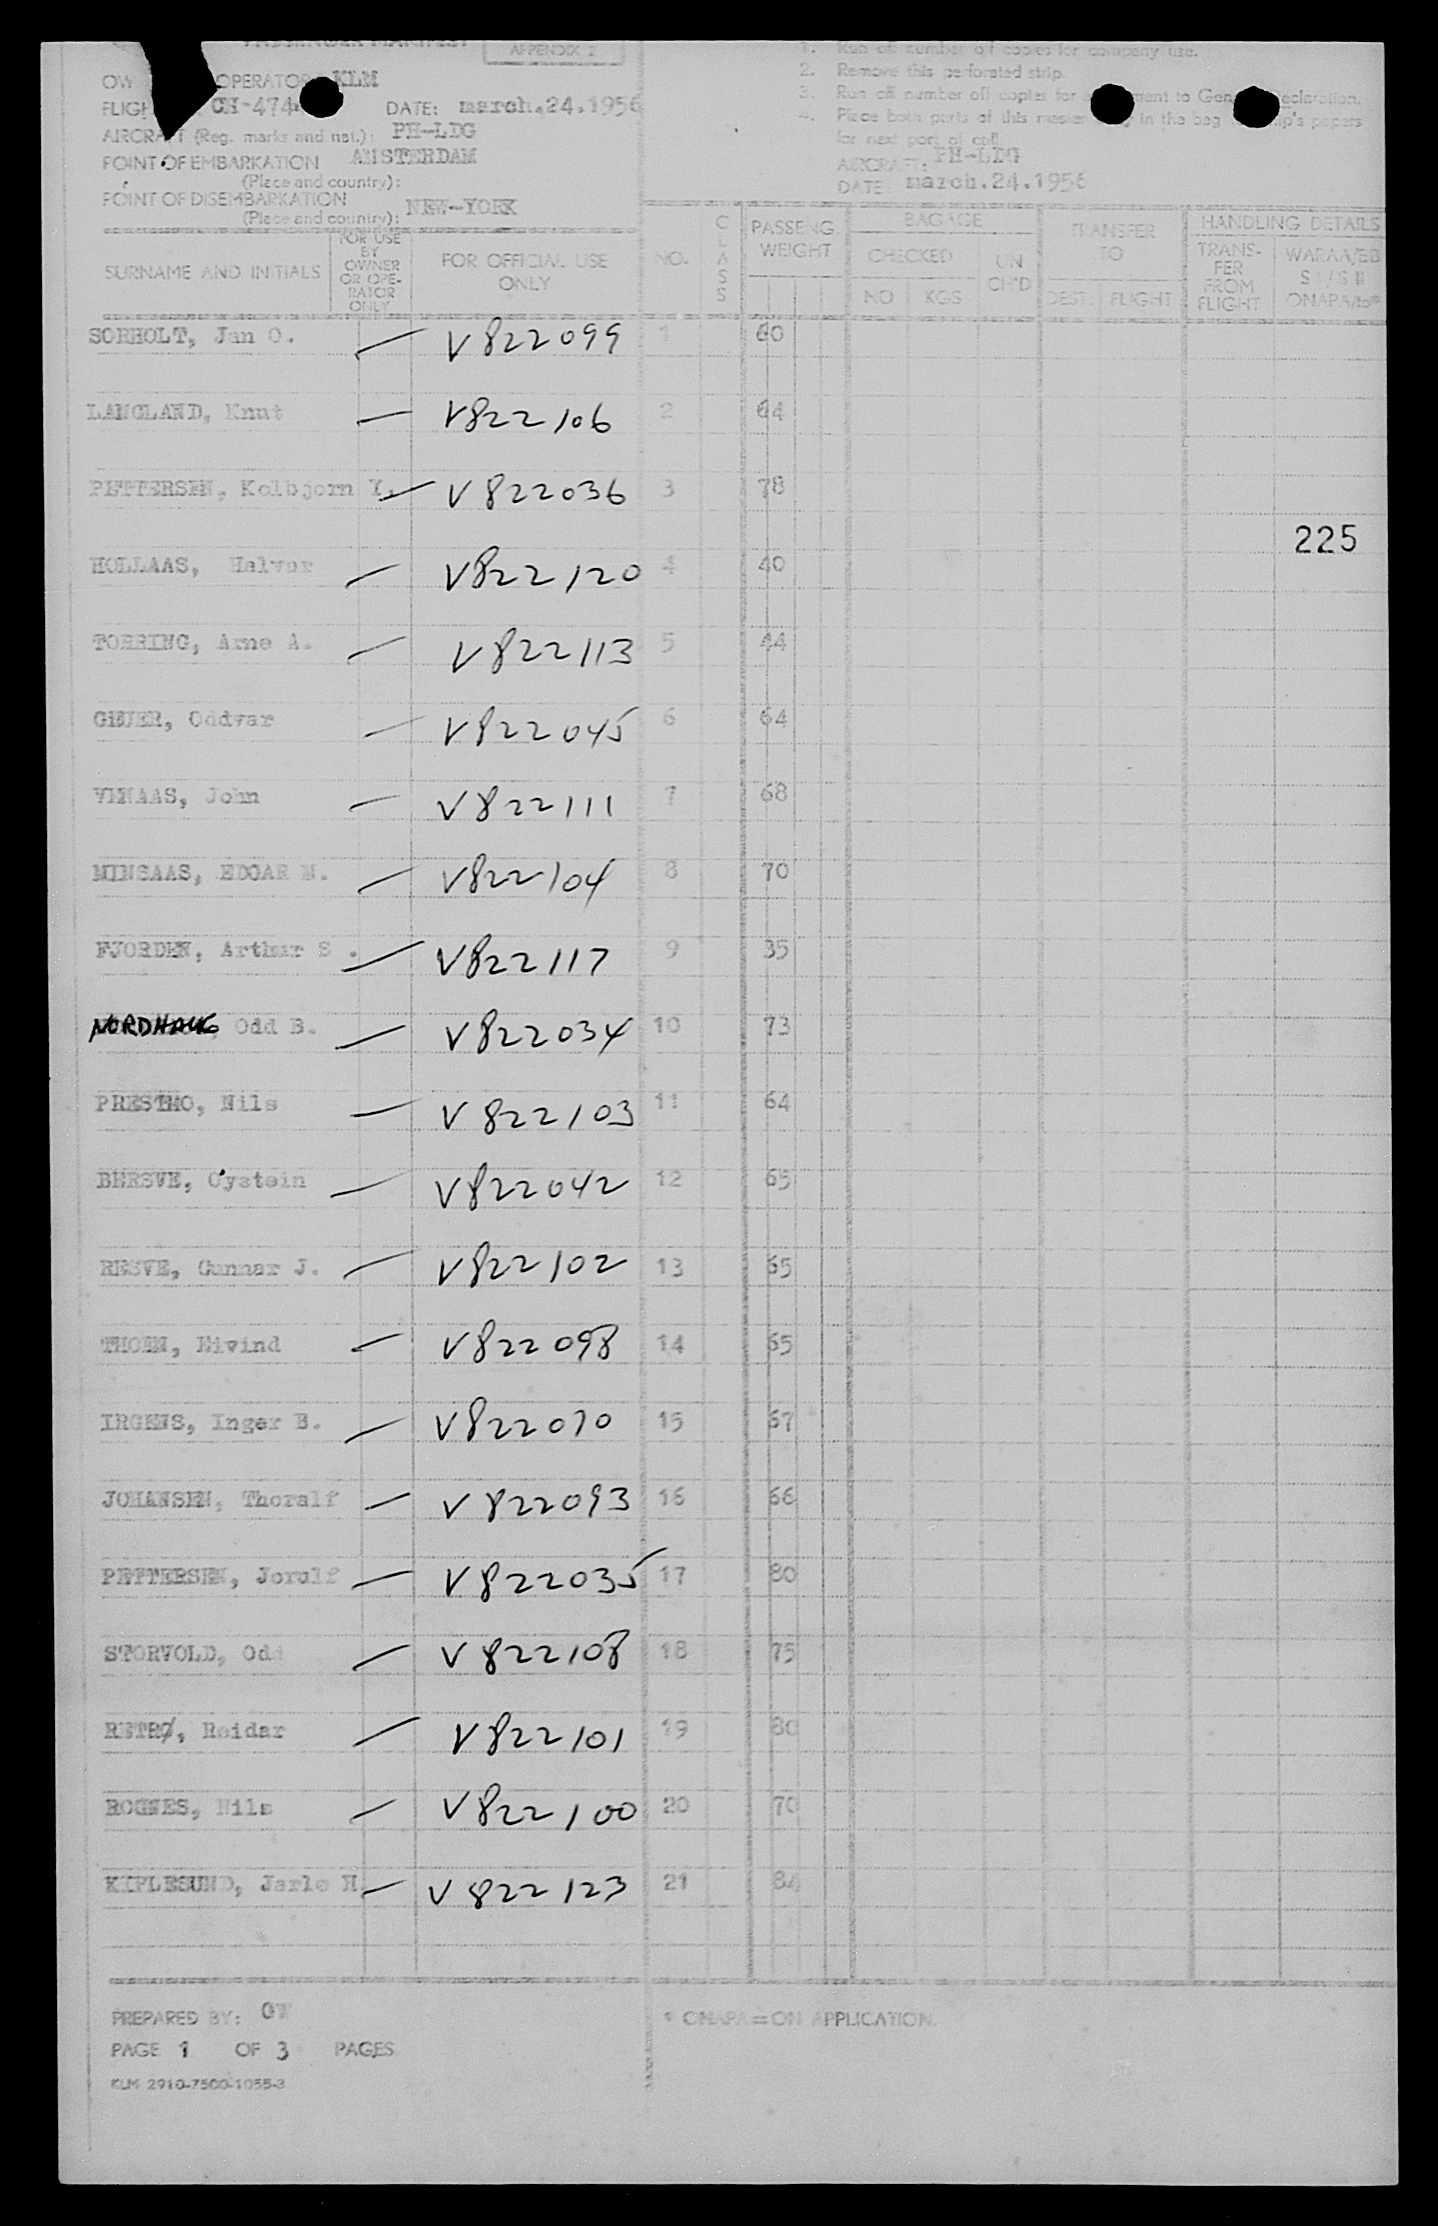 PASSENGER MANIFEST
APPENDIX 2
OPERATOR KLM
CH-474
DATE: march.24.1956
AIRCRAFT (Reg. marks and nat.): PH-LDG
POINT OF EMBARKATION AMSTERDAM
(Place and country):
POINT OF DISEMBARKATION
(Place and country): NEW-YORK
1. Run off number off copies for company use.
2. Remove this perforated strip.
3. Run off number off copies for
4. Place both parts of this master in the bag papers
for next port of call.
AIRCRAFT: PH-LDG
DATE: march.24.1956
SURNAME AND INITIALS
FOR USE BY OWNER OR OPE-RATOR ONLY
FOR OFFICIAL USE ONLY
NO.
CLASS
PASSENG. WEIGHT
BAGAGE
CHECKED
NO KGS
UN CH'D
TRANSFER TO
DEST: FLIGHT
HANDLING DETAILS
TRANS-FER FROM FLIGHT
ONAPA/to*
SORHOLT, Jan O. — V822099 1 60
LANGLAND, Knut — V822106 2 64
PETTERSEN, Kolbjorn Y. — V822036 3 78
225
HOLLAAS, Halvor — V822120 4 40
TORRING, Arne A. — V822113 5 44
Oddvar — V822045 6 64
VENAAS, John — V822111 7 68
MINSAAS, EDGAR M. — V822104 8 70
FJORDEN, Arthur S. — V822117 9 35
NORDHAUG, Odd B. — V822034 10 73
PRESTMO, Nils — V822103 11 64
BERSVE, Oystein — V822042 12 65
RESVE, Gunnar J. — V822102 13 65
THOEN, Eivind — V822098 14 65
IRGENS, Inger B. — V822070 15 67
JOHANSEN, Thoralf — V822093 16 66
PETTERSEN, Joralf — V822035 17 80
STORVOLD, Odd — V822108 18 75
RETRØ, Reidar — V822101 19 80
ROGNES, Nils — V822100 20 70
KIPLESUND, Jarle H. — V822123 21 84
PREPARED BY: GW
* ONAPA = ON APPLICATION.
PAGE 1 OF 3 PAGES
KLM 2910-7500-1055-3